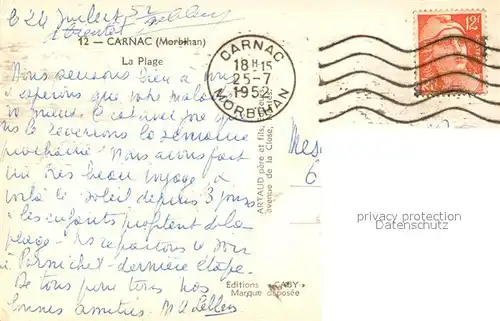 24 Juillet 52
12 — CARNAC (Morbihan)
La Plage
CARNAC
18H15
25-7
1952
MORBIHAN
12f
Nous pensons bien à vous
espérons que votre malade
va mieux. C'est avec joie que
la reverrons la semaine
prochaine. Nous avons fait
un très beau voyage
voilà le soleil depuis 3 jours
les enfants profitent de la
plage. Ns repartons ce soir
à Pornichet - dernière étape.
De tous pour tous nos
bonnes amitiés.
ARTAUD père et fils,
avenue de la Close,
Mes
6
privacy protection
Datenschutz
Editions "GABY"
Marque déposée